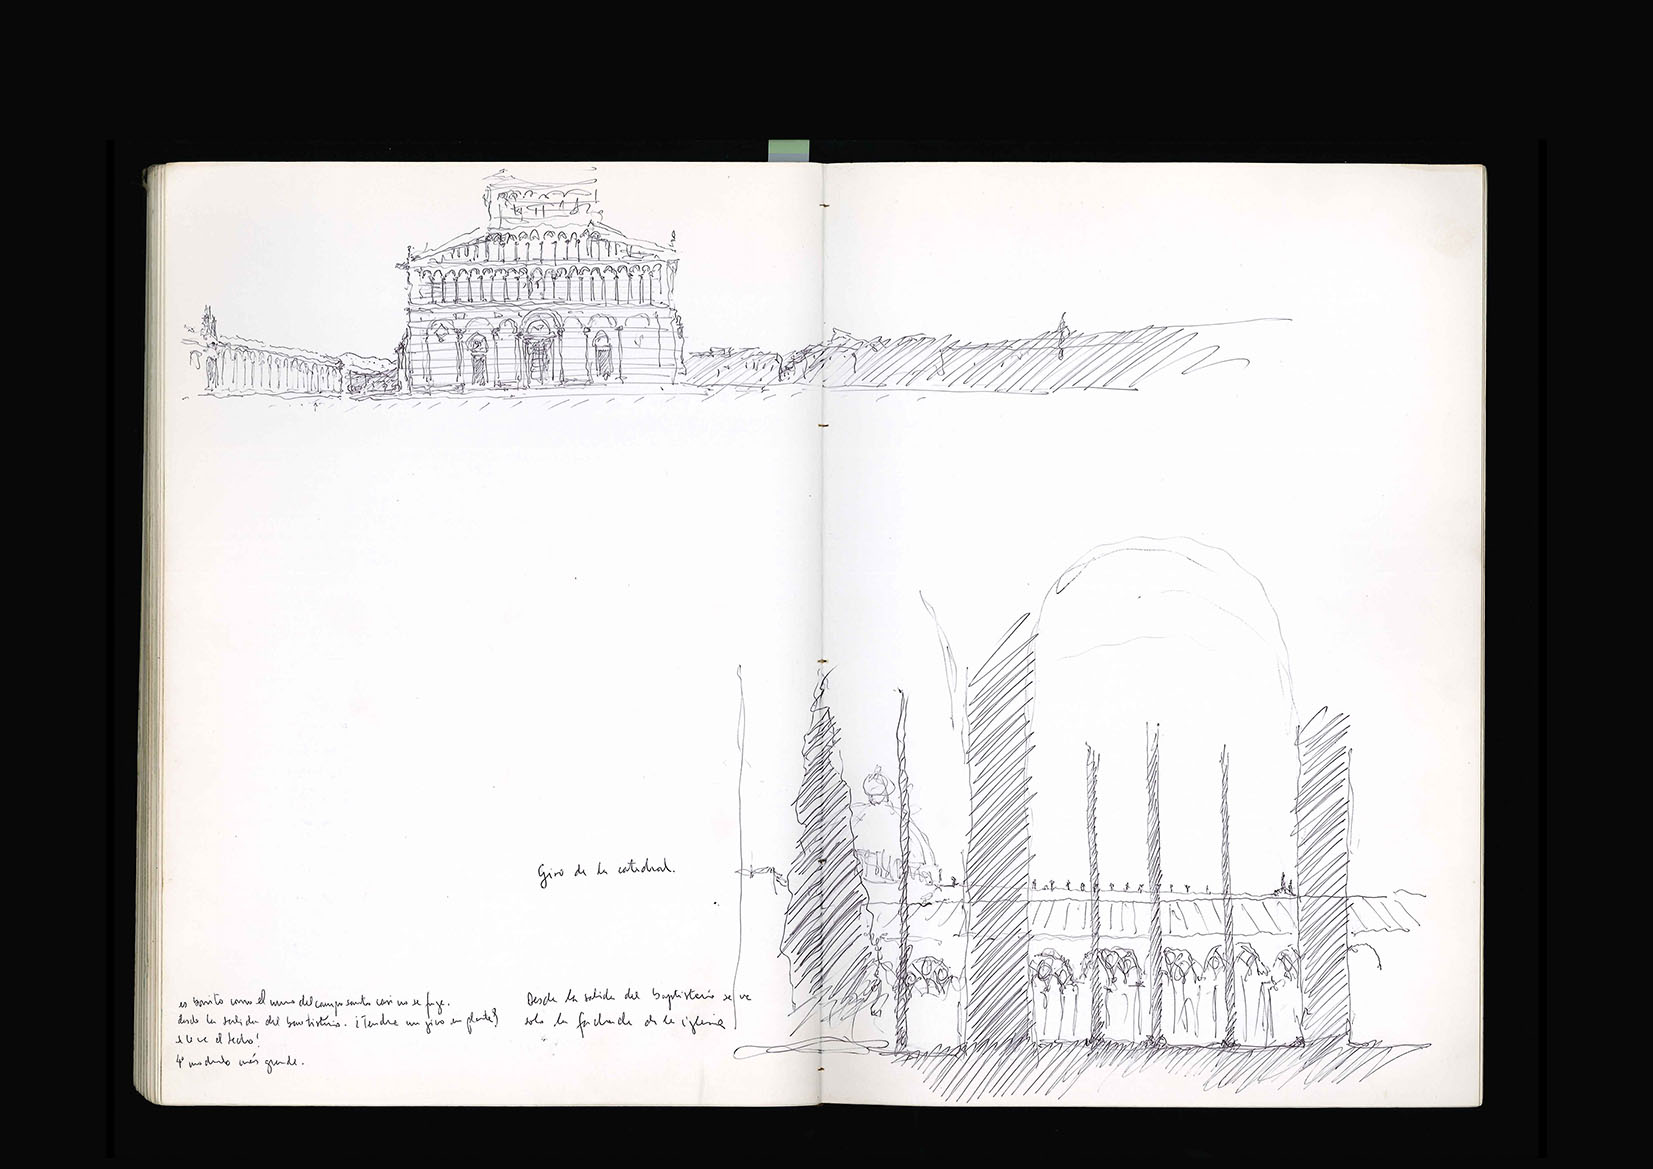 Giro de la catedral.
es bonito como el muro del camposanto casi no se fuga.
desde la salida del baptisterio. ¿Tendrá un giro en planta?
se ve el techo!
4º modulo más grande.
Desde la salida del baptisterio se ve
solo la fachada de la iglesia